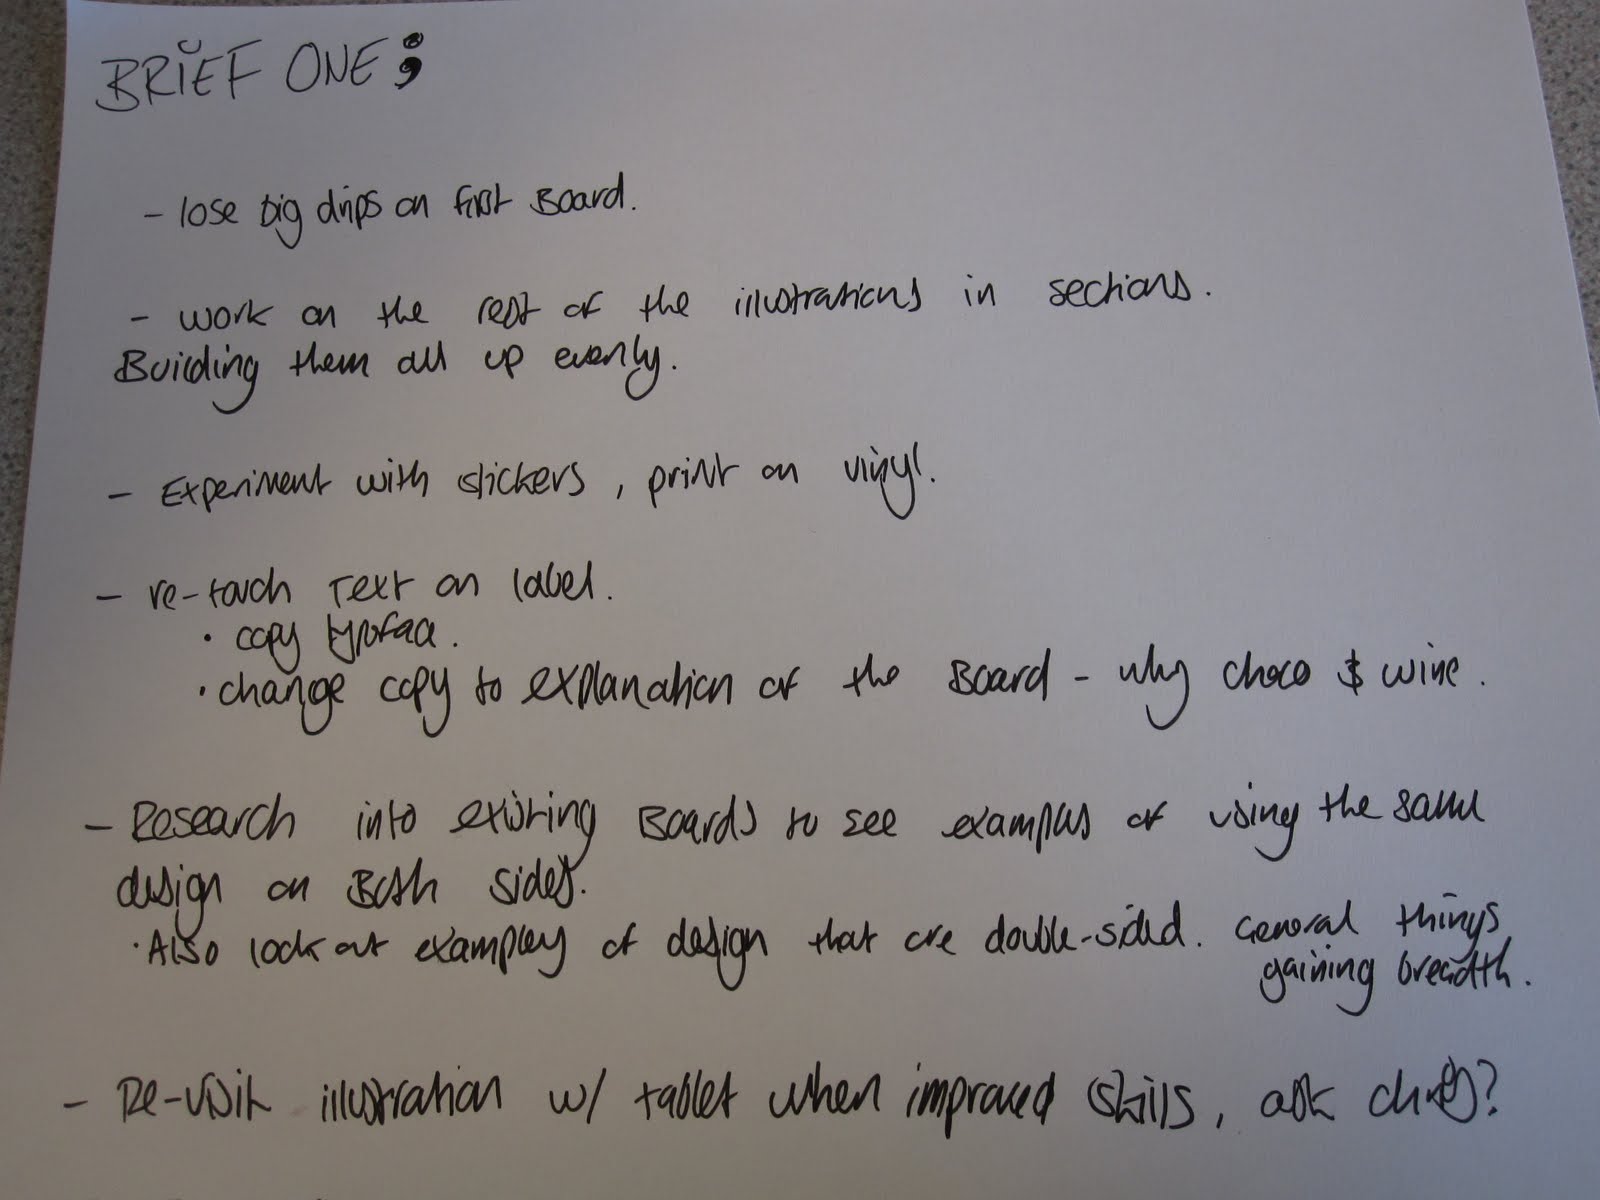 BRIEF ONE;
- lose big drips on first Board.
- work on the rest of the illustrations in sections.
Building them all up evenly.
- Experiment with stickers, print on vinyl.
- re-touch Text on label.
• copy typeface.
• change copy to explanation of the Board - why choco & wine.
- Research into existing Boards to see examples of using the same
design on Both sides.
• Also look at examples of design that are double-sided. General things
gaining breadth.
- Re-visit illustration w/ tablet when improved skills, ask chris?